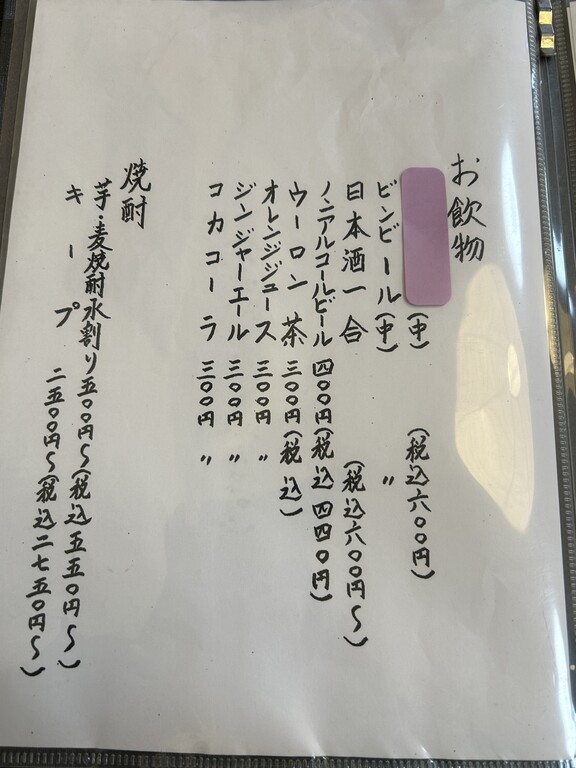 お飲物
(中) (税込六〇〇円)
ビンビール(中) 〃
日本酒一合 (税込六〇〇円〜)
ノンアルコールビール 四〇〇円(税込四四〇円)
ウーロン茶 三〇〇円(税込)
オレンジジュース 三〇〇円 〃
ジンジャーエール 三〇〇円 〃
コカコーラ 三〇〇円 〃
焼酎
芋・麦焼酎水割り 五〇〇円〜(税込五五〇円〜)
キープ 二五〇〇円〜(税込二七五〇円〜)